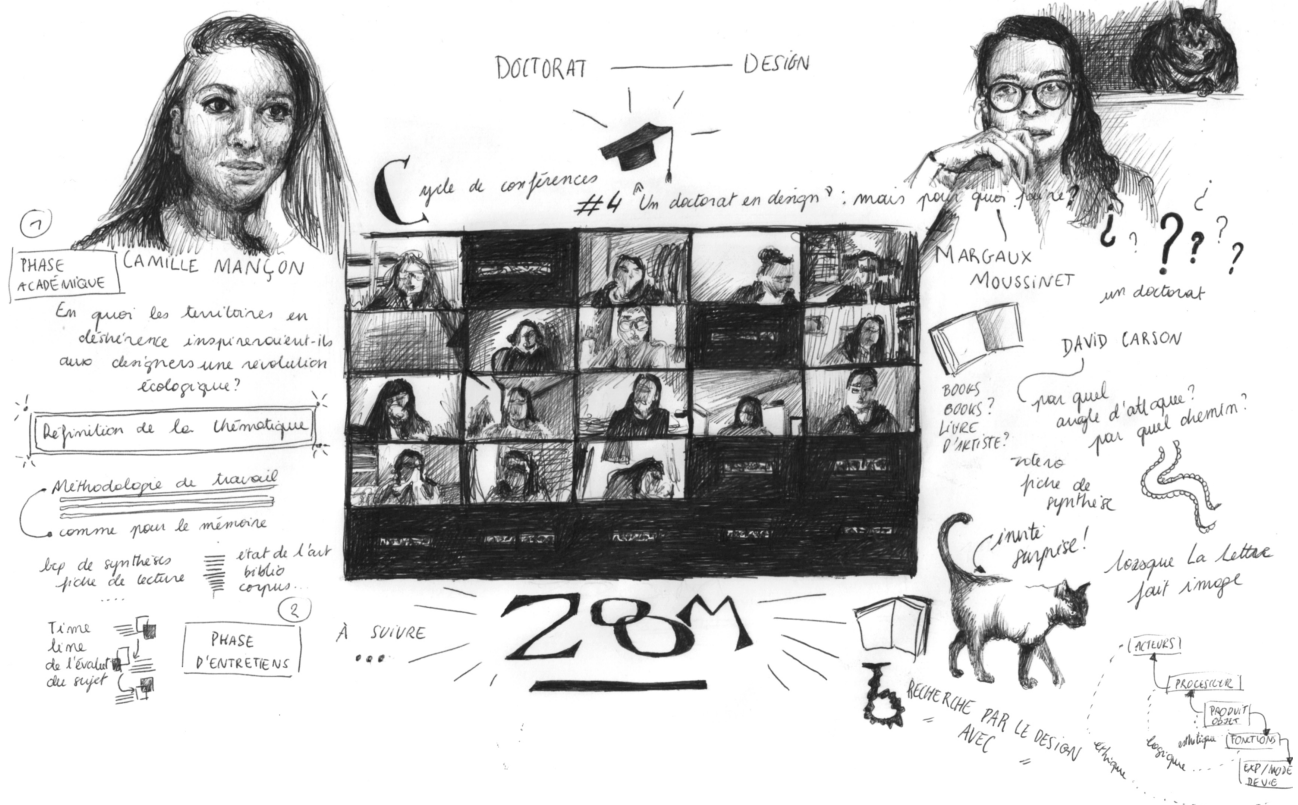 DOCTORAT — DESIGN
Cycle de conférences
#4 "Un doctorat en design" : mais pour quoi faire?
1
PHASE
ACADÉMIQUE
CAMILLE MANÇON
En quoi les territoires en
déshérence inspireraient-ils
aux designers une révolution
écologique?
Définition de la thématique
Méthodologie de travail
comme pour le mémoire
bcp de synthèses
fiche de lecture
....
état de l'art
biblio
corpus...
Time
line
de l'évolut
du sujet
2
PHASE
D'ENTRETIENS
À SUIVRE
...
ZOOM
MARGAUX
MOUSSINET
¿ ? ? ? ? ¿ ?
un doctorat
DAVID CARSON
BOOKS
BOOKS?
LIVRE
D'ARTISTE?
par quel
angle d'attaque?
par quel chemin?
fiche de
synthèse
invité
surprise!
lorsque La lettre
fait image
b
RECHERCHE PAR LE DESIGN
= AVEC =
ACTEURS
PRODUIT
OBJET
FONCTIONS
EXP/MODE
DE VIE
éthique
logique
esthétique